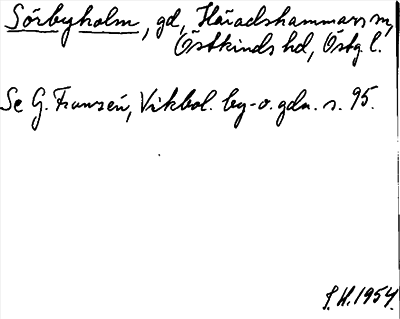 Sörbyholm, gd, Häradshammars sn,
Östkinds hd, Östg l.
Se G. Franzén, Vikbol. by- o. gdn. s. 95.
S. H. 1954.